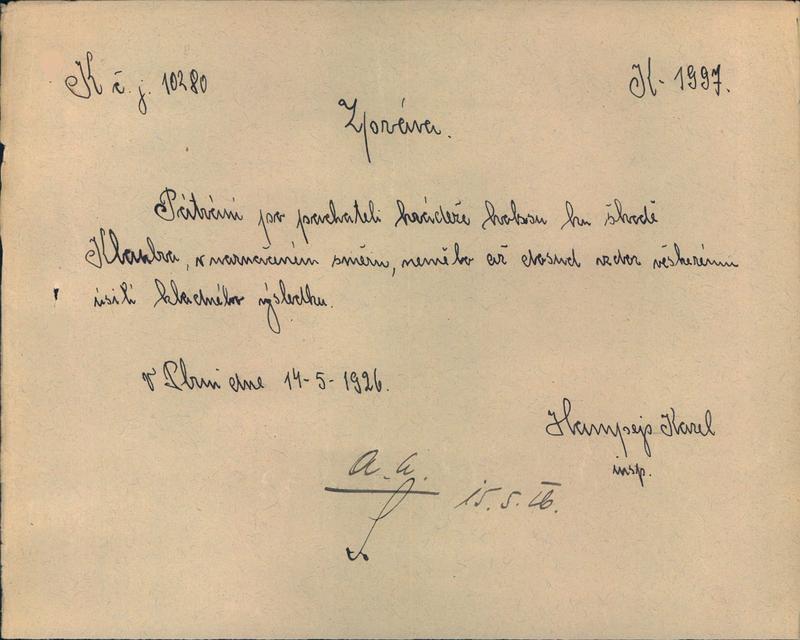 K č. j. 10280
K- 1997.
Zpráva.
Pátrání po pachateli krádeže koksu ku škodě
Klaubra, v naznačeném směru, nemělo až dosud vzdor veškerému
úsilí kladného výsledku.
v Plzni dne 14-5-1926.
Hampejs Karel
insp.
a. a.
15.5.26.